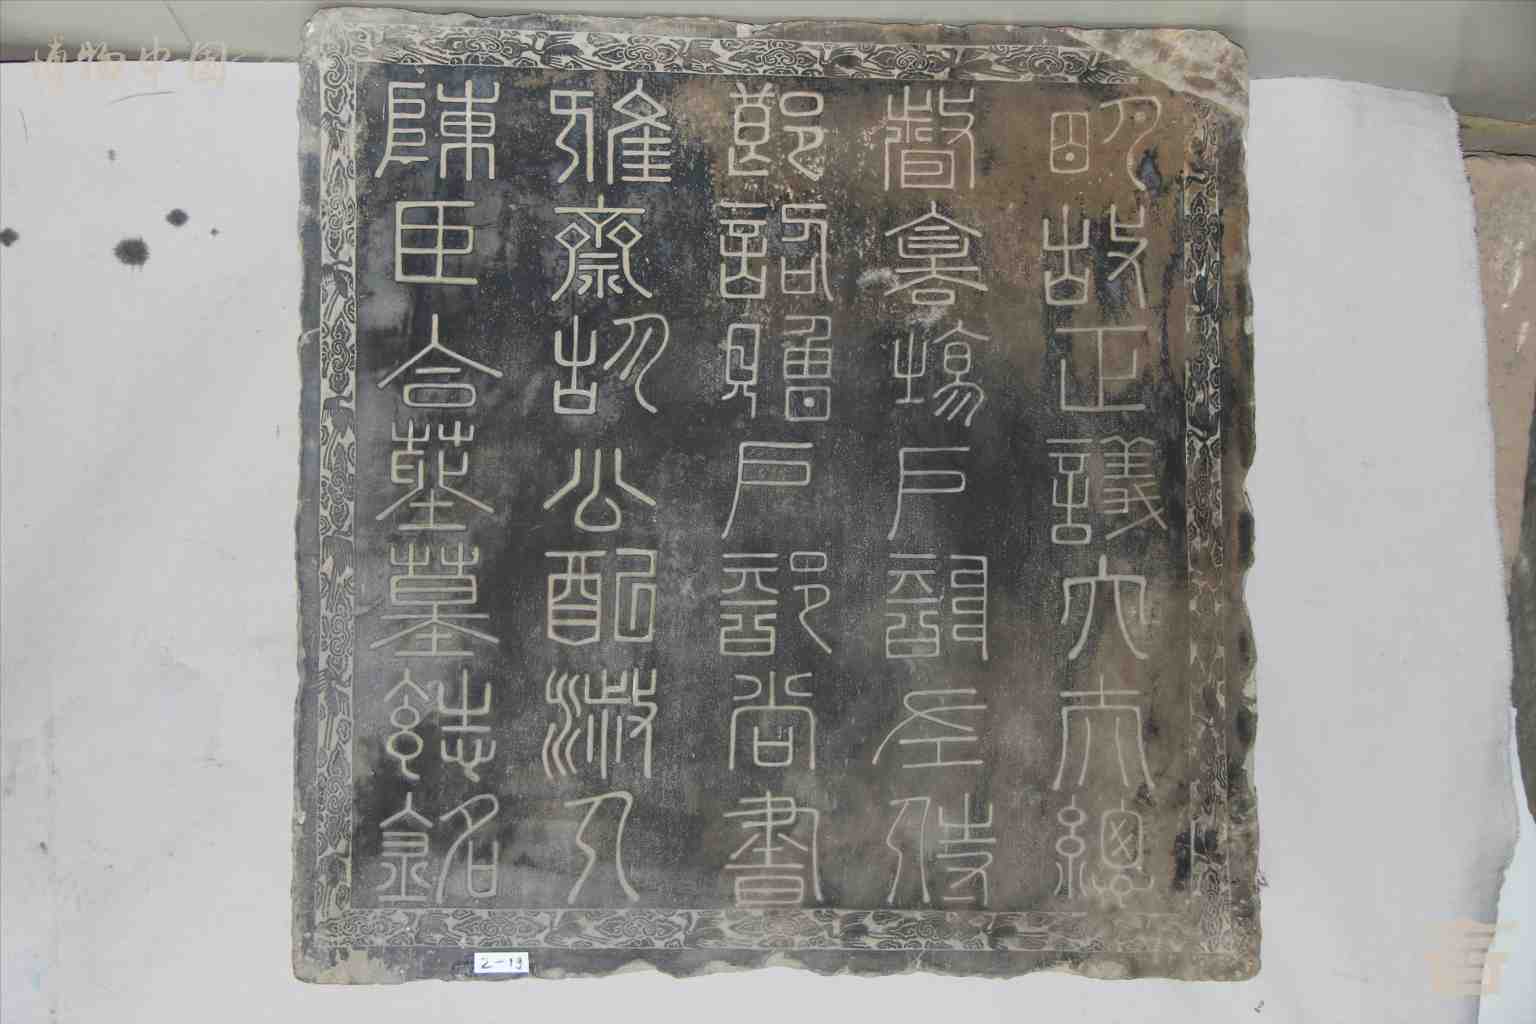 明故正議大夫總
督倉場戶部左侍
郎詔贈戶部尚書
雅齋胡公配淑人
陳臣合葬墓誌銘
2-19
博物中国